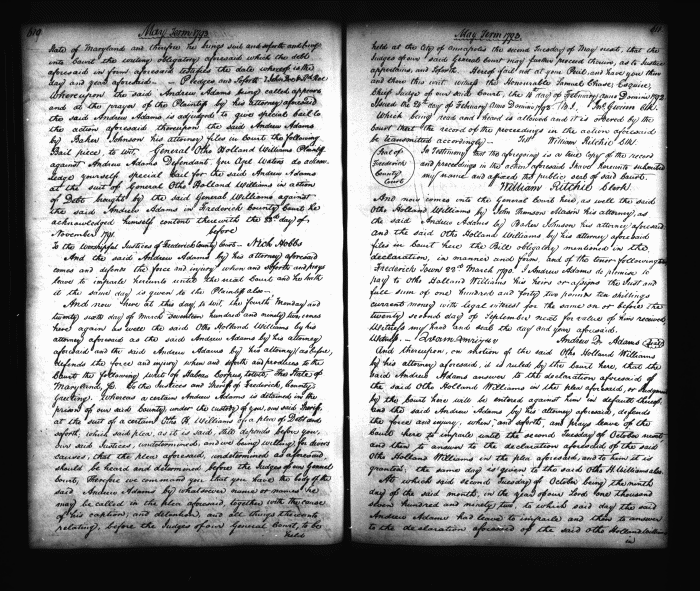 May Term 1793
State of Maryland and therefore he brings suit and so forth and brings
into Court the writing obligatory aforesaid which the debt
aforesaid in form aforesaid testifies the date whereof is the
day and year aforesaid Pledges and so forth John Doe & Rd Roe
Whereupon the said Andrew Adams being called appears
and at the prayer of the Plaintiff by his attorney aforesaid
the said Andrew Adams is adjudged to give special bail to
the action aforesaid thereupon the said Andrew Adams
by Baker Johnson his attorney files in Court the following
Bail piece to wit, General Otho Holland Williams Plaintiff
against Andrew Adams Defendant. You Waters do acknow
ledge yourself special bail for the said Andrew Adams
at the suit of General Otho Holland Williams in action
of Debt brought by the said General Williams against
the said Andrew Adams in Frederick County Court he
acknowledged himself content therewith the day of
November 1791. before
To the Worshipful Justices of Frederick County Court — Nich Hobbs
And the said Andrew Adams by his attorney aforesaid
comes and defends the force and injury when and so forth and prays
leave to imparle hereunto until the next Court and he hath
it the same day is given to the Plaintiff also —
And now here at this day, to wit, the fourth Monday and
twenty sixth day of March seventeen hundred and ninety two comes
here again as well the said Otho Holland Williams by his
attorney aforesaid as the said Andrew Adams by his attorney
aforesaid and the said Andrew Adams by his attorney as before,
defends the force and injury when and so forth and produces to the
Court the following writ of Habeas Corpus, to wit, The State of
Maryland, Sc. To the Justices and Sheriff of Frederick County
Greeting. Whereas a certain Andrew Adams is detained in the
prison of our said County under the custody of you, our said Sheriff,
at the suit of a certain Otho H. Williams of a plea of Debt and
so forth, which said plea, as it is said, still depends before you,
our said Justices, undetermined, and we being willing for divers
causes, that the plea aforesaid, undetermined as aforesaid
should be heard and determined before the Judges of our General
Court, therefore we command you that you have the body of the
said Andrew Adams by whatsoever name or names he
may be called in the plea aforesaid, together with the cause
of his caption, and detention, and all things thereunto
relating, before the Judges of our General Court, to be
held
May Term 1793.
held at the City of Annapolis the second Tuesday of May next, that the
Judges of our said General Court may further proceed therein, as to Justice
appertains, and so forth. Hereof fail not at your Peril, and have you then
and there this writ. Witness the Honorable Samuel Chase, Esquire,
Chief Judge of our said Court, the 14 day of February Anno Domini 1792
Issued the 20th day of February Anno Domini 1792. Jno. Gwinn Clk.
Which being read and heard is allowed and it is ordered by the
Court that the record of the proceedings in the action aforesaid
be transmitted accordingly — Test William Ritchie Clk.
Seal of
Frederick
County
Court
In Testimony that the foregoing is a true Copy of the record
and proceedings in the action aforesaid I have hereunto subscribed
my name and affixed the public seal of said Court.
William Ritchie Clerk.
And now comes into the General Court here, as well the said
Otho Holland Williams by John Thomson Mason his attorney, as
the said Andrew Adams by Baker Johnson his attorney aforesaid
and the said Otho Holland Williams by his attorney aforesaid
files in Court here the Bill Obligatory mentioned in the
declaration, in manner and form, and of the tenor following,
Frederick Town 22nd March 1790. I Andrew Adams do promise to
pay to Otho Holland Williams his heirs or assigns the Just and
full sum of one hundred and forty two pounds ten shillings
current money with legal interest for the same on or before the
twenty second day of September next for value of him received,
Witness my hand and seal the day and year aforesaid.
Witness Andrew Adams Seal
And thereupon, on motion of the said Otho Holland Williams
by his attorney aforesaid, it is ruled by the Court here, that the
said Andrew Adams answer to the declaration aforesaid of
the said Otho Holland Williams in the plea aforesaid, or Judgment
by the Court here will be entered against him in default thereof,
And the said Andrew Adams by his attorney aforesaid, defends
the force and injury, when, and so forth, and prays leave of the
Court here to imparle until the second Tuesday of October next,
and then to answer to the declaration aforesaid of the said
Otho Holland Williams in the plea aforesaid, and to him it is
granted; the same day is given to the said Otho H. Williams also.
At which said second Tuesday of October being the ninth
day of the said month, in the year of our Lord one thousand
seven hundred and ninety two, to which said day the said
Andrew Adams had leave to imparle and then to answer
to the declaration aforesaid of the said Otho Holland Williams
in